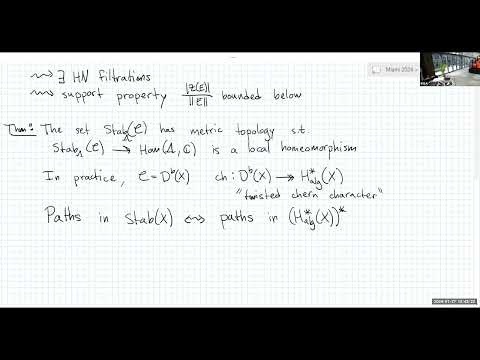 ⇝ ∃ HN filtrations
⇝ support property |Z(E)|/||E|| bounded below
Miami 2024
Thm: The set Stab_Λ(𝒞) has metric topology s.t.
Stab_Λ(𝒞) → Hom(Λ, ℂ) is a local homeomorphism
In practice, 𝒞 = D^b(X) ch: D^b(X) ↠ H*_alg(X)
"twisted chern character"
Paths in Stab(X) ↭ paths in (H*_alg(X))*